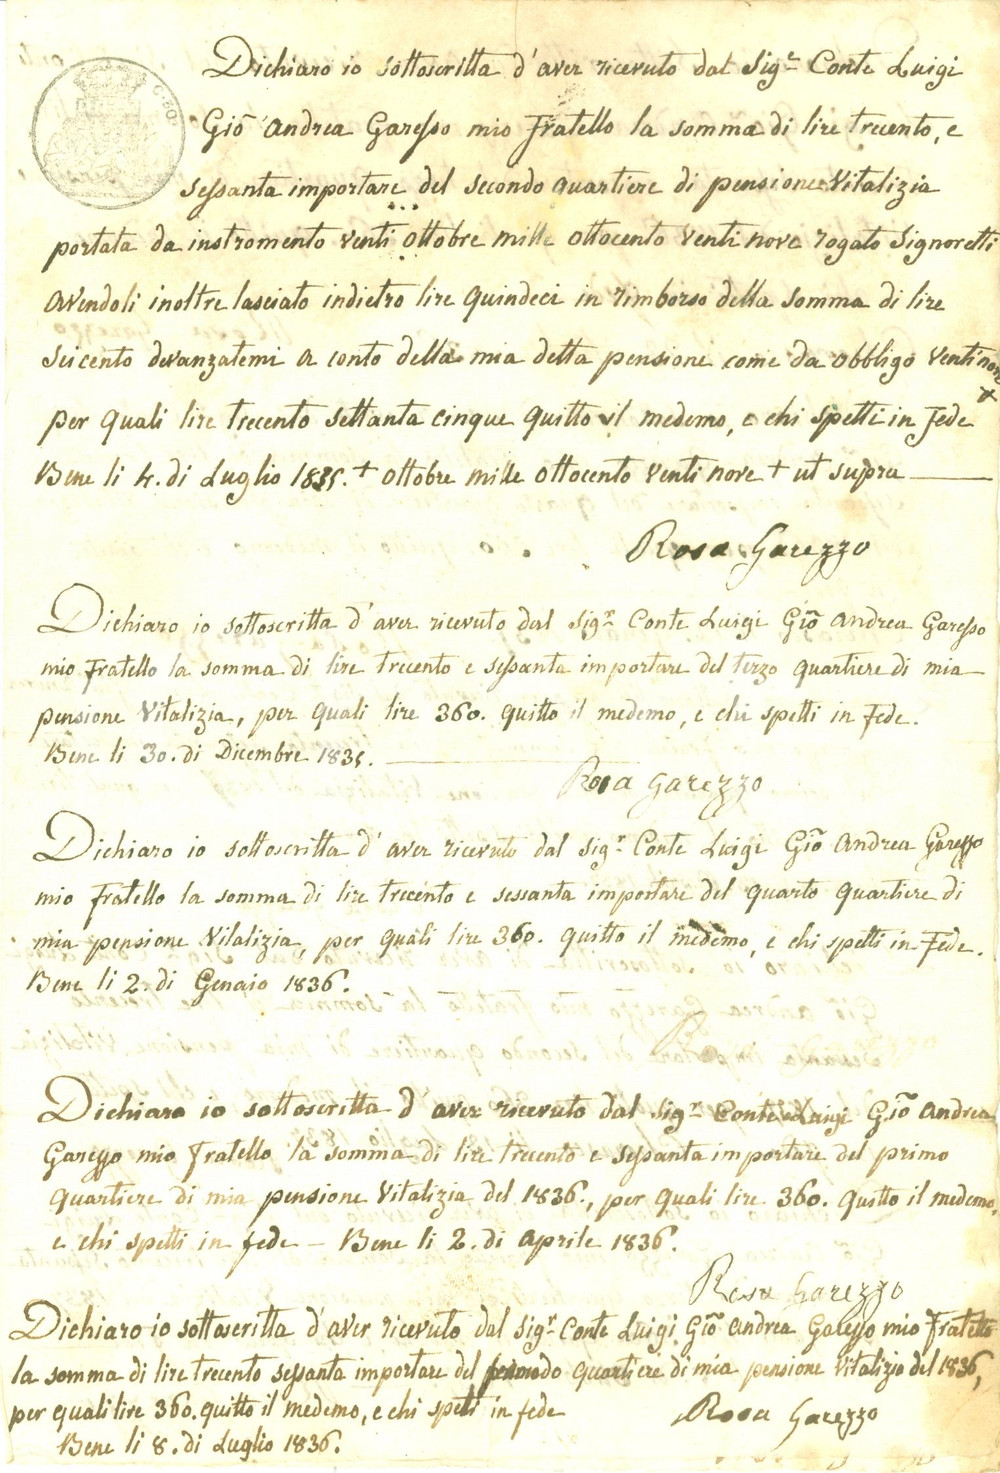 Dichiaro io sottoscritta d'aver ricevuto dal Sig.r Conte Luigi
Giō Andrea Garesso mio Fratello la somma di lire trecento, e
sessanta importare del secondo quartiere di pensione Vitalizia
portata da instromento venti ottobre mille ottocento venti nove rogato Signoretti
avendoli inoltre lasciato indietro lire quindeci in rimborso della somma di lire
seicento devanzatemi a conto della mia detta pensione come da obbligo ventinove +
per quali lire trecento settanta cinque quitto il medemo, e chi spetti in Fede
Bene li 4. di Luglio 1835. + ottobre mille ottocento venti nove + ut supra
Rosa Garezzo
Dichiaro io sottoscritta d'aver ricevuto dal Sig.r Conte Luigi Giō Andrea Garesso
mio Fratello la somma di lire trecento e sessanta importare del terzo quartiere di mia
pensione Vitalizia, per quali lire 360. quitto il medemo, e chi spetti in Fede.
Bene li 30. di Dicembre 1835.
Rosa Garezzo
Dichiaro io sottoscritta d'aver ricevuto dal Sig.r Conte Luigi Giō Andrea Garesso
mio Fratello la somma di lire trecento e sessanta importare del quarto quartiere di
mia pensione Vitalizia, per quali lire 360. quitto il medemo, e chi spetti in Fede.
Bene li 2. di Genaio 1836.
Dichiaro io sottoscritta d'aver ricevuto dal Sig.r Conte Luigi Giō Andrea
Garesso mio Fratello la somma di lire trecento e sessanta importare del primo
quartiere di mia pensione Vitalizia del 1836., per quali lire 360. quitto il medemo,
e chi spetti in fede – Bene li 2. di Aprile 1836.
Rosa Garezzo
Dichiaro io sottoscritta d'aver ricevuto dal Sig.r Conte Luigi Giō Andrea Garesso mio Fratello
la somma di lire trecento sessanta importare del quartiere di mia pensione Vitalizia del 1836,
per quali lire 360. quitto il medemo, e chi spetti in fede
Rosa Garezzo
Bene li 8. di Luglio 1836.